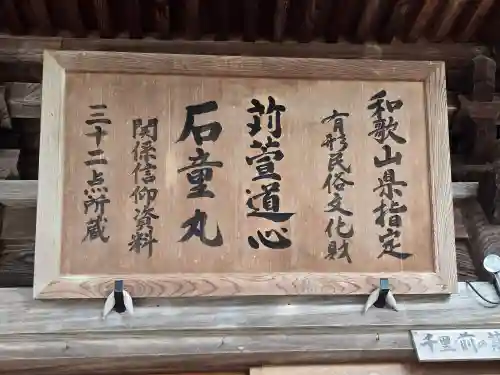 和歌山県指定
有形民俗文化財
苅萱道心
石童丸
関係信仰資料
三十二点所蔵
千里前の